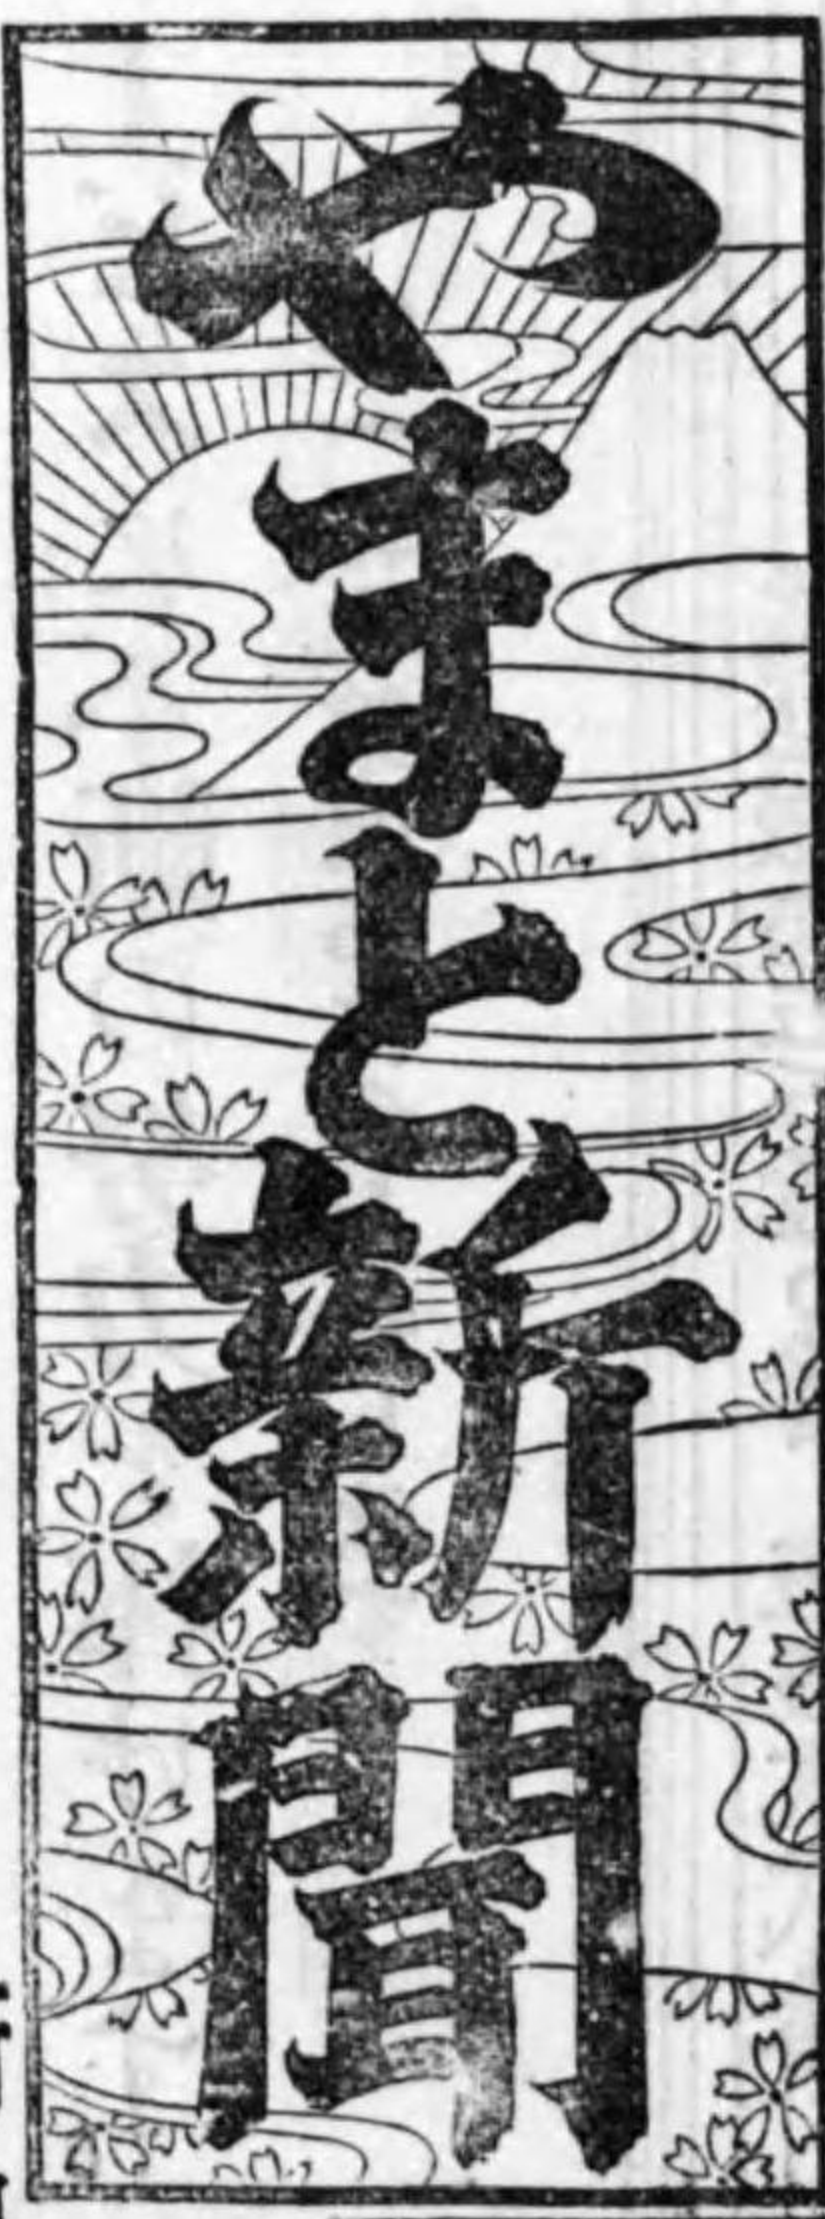 やまと新聞